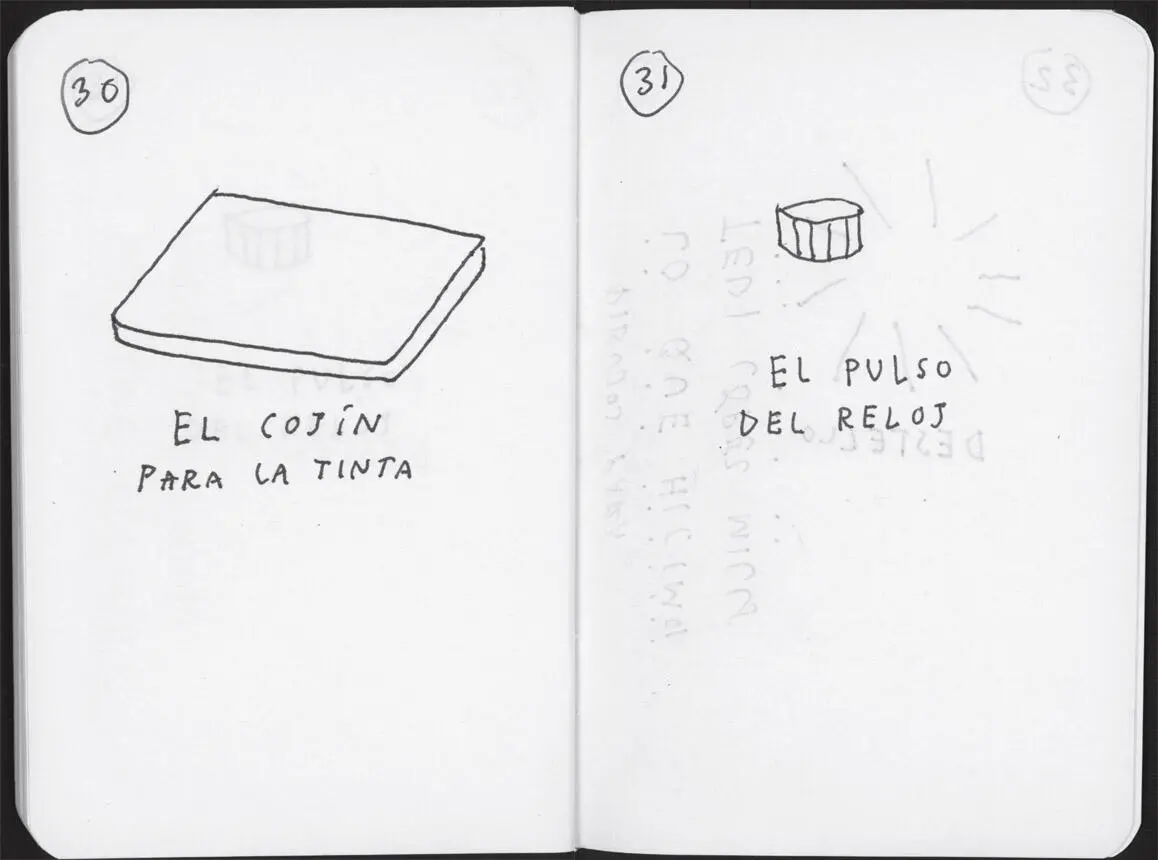 30
EL COJÍN
PARA LA TINTA
31
EL PULSO
DEL RELOJ
32
DESTELLO